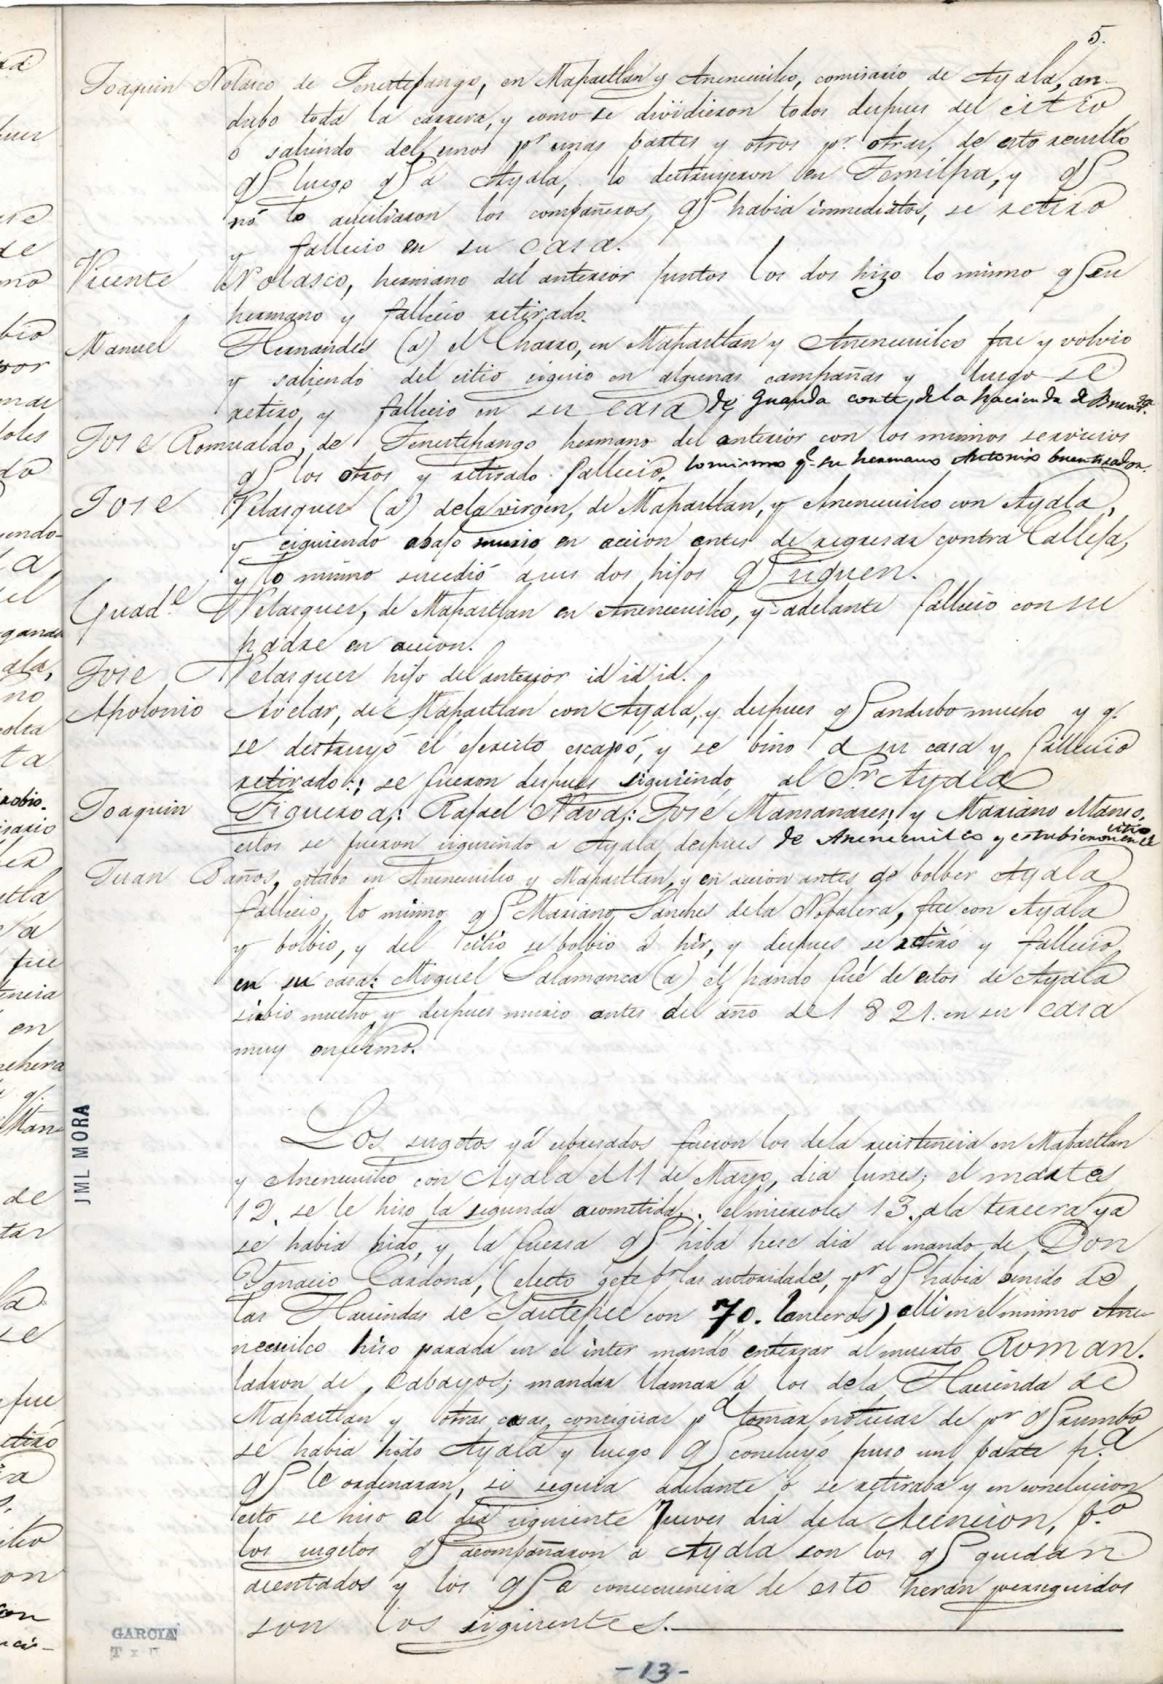 5.
Joaquin Nolasco de Tenestepango, en Mapastlan y Anenecuilco, comisario de Ayala, an-
dubo toda la carrera, y como se dividieron todos despues del citio
ó saliendo del, unos pr unas partes y otros pr. otras, de esto resulto
q luego q a Ayala, lo destruyeron en Temilpa, y q
nó lo aucciliaron los compañeros, q habia inmediatos, se retiro
y fallecio en su casa.
Vicente Nolasco, hermano del anterior juntos los dos hizo lo mismo q su
hermano y fallecio retirado.
Manuel Hernandes (a) el Charro, en Mapastlan y Anenecuilco fue y volvio
y saliendo del citio ciguio en algunas campañas y luego se
retiro, y fallecio en su casa de Guarda de la hacienda de Buena
Jose Romualdo, de Tenestepango hermano del anterior con los mismos servicios
q los otros y retirado fallecio, lo mismo q. su hermano Antonio
Jose Velasquez (a) de la virgen, de Mapastlan, y Anenecuilco con Ayala,
y ciguiendo abajo murio en accion antes de regresar contra Calleja,
y lo mismo sucedió a sus dos hijos q siguen.
Guade. Velasquez, de Mapastlan en Anenecuilco, y adelante fallecio con su
padre en accion.
Jose Velasquez hijo del anterior id id id.
Apolonio Avelar, de Mapastlan con Ayala, y despues q andubo mucho y q.
se destruyó el ejercito escapó, y se bino a su casa y fallecio
retirado; se fueron despues siguiendo al Sr. Ayala
Joaquin Figueroa: Rafael Nava: Jose Mansanares; y Mariano Manso.
estos se fueron ciguiendo a Ayala despues de Anenecuilco y estubieron en el citio
Juan Baños, estubo en Anenecuilco y Mapastlan, y en accion antes de bolber Ayala
fallecio, lo mismo q Mariano Sanches de la Nopalera, fue con Ayala
y bolbio, y del citio se bolbio á hir, y despues se retiró y fallecio,
en su casa: Miguel Salamanca (a) el pando fué de estos de Ayala
sirbio mucho y despues murio antes del año de 1821. en su casa
muy enfermo.
Los sugetos yá espresados fueron los de la recistencia en Mapastlan
y Anenecuilco con Ayala el 11 de Mayo, dia lunes; el martes
12. se le hiso la segunda acometida. el miercoles 13. a la tercera ya
se habia hido, y la fuersa q hiba hese dia al mando de Don
Ygnacio Cardona, (electo gefe pr las autoridades, pr q habia benido de
las Haciendas de Yautepec con 70. lanceros) alli en el mismo Ane-
necuilco hiso parada en el inter mandó enterrar al muerto Roman.
ladron de cabayos; mandar llamar á los de la Hacienda de
Mapastlan y otras cosas, tomar noticias de pr q rumbo
se habia hido Ayala y luego q concluyó puso un parte p.a
q le ordenaran, si seguia adelante ó se retiraba y en conclucion
esto se hiso al dia ciguiente Jueves dia de la Acencion, p.o
los sugetos q acompañaron a Ayala son los q quedan
asentados y los q a consecuencia de esto heran perseguidos
son los siguientes.
JML MORA
GARCIA
- 13 -